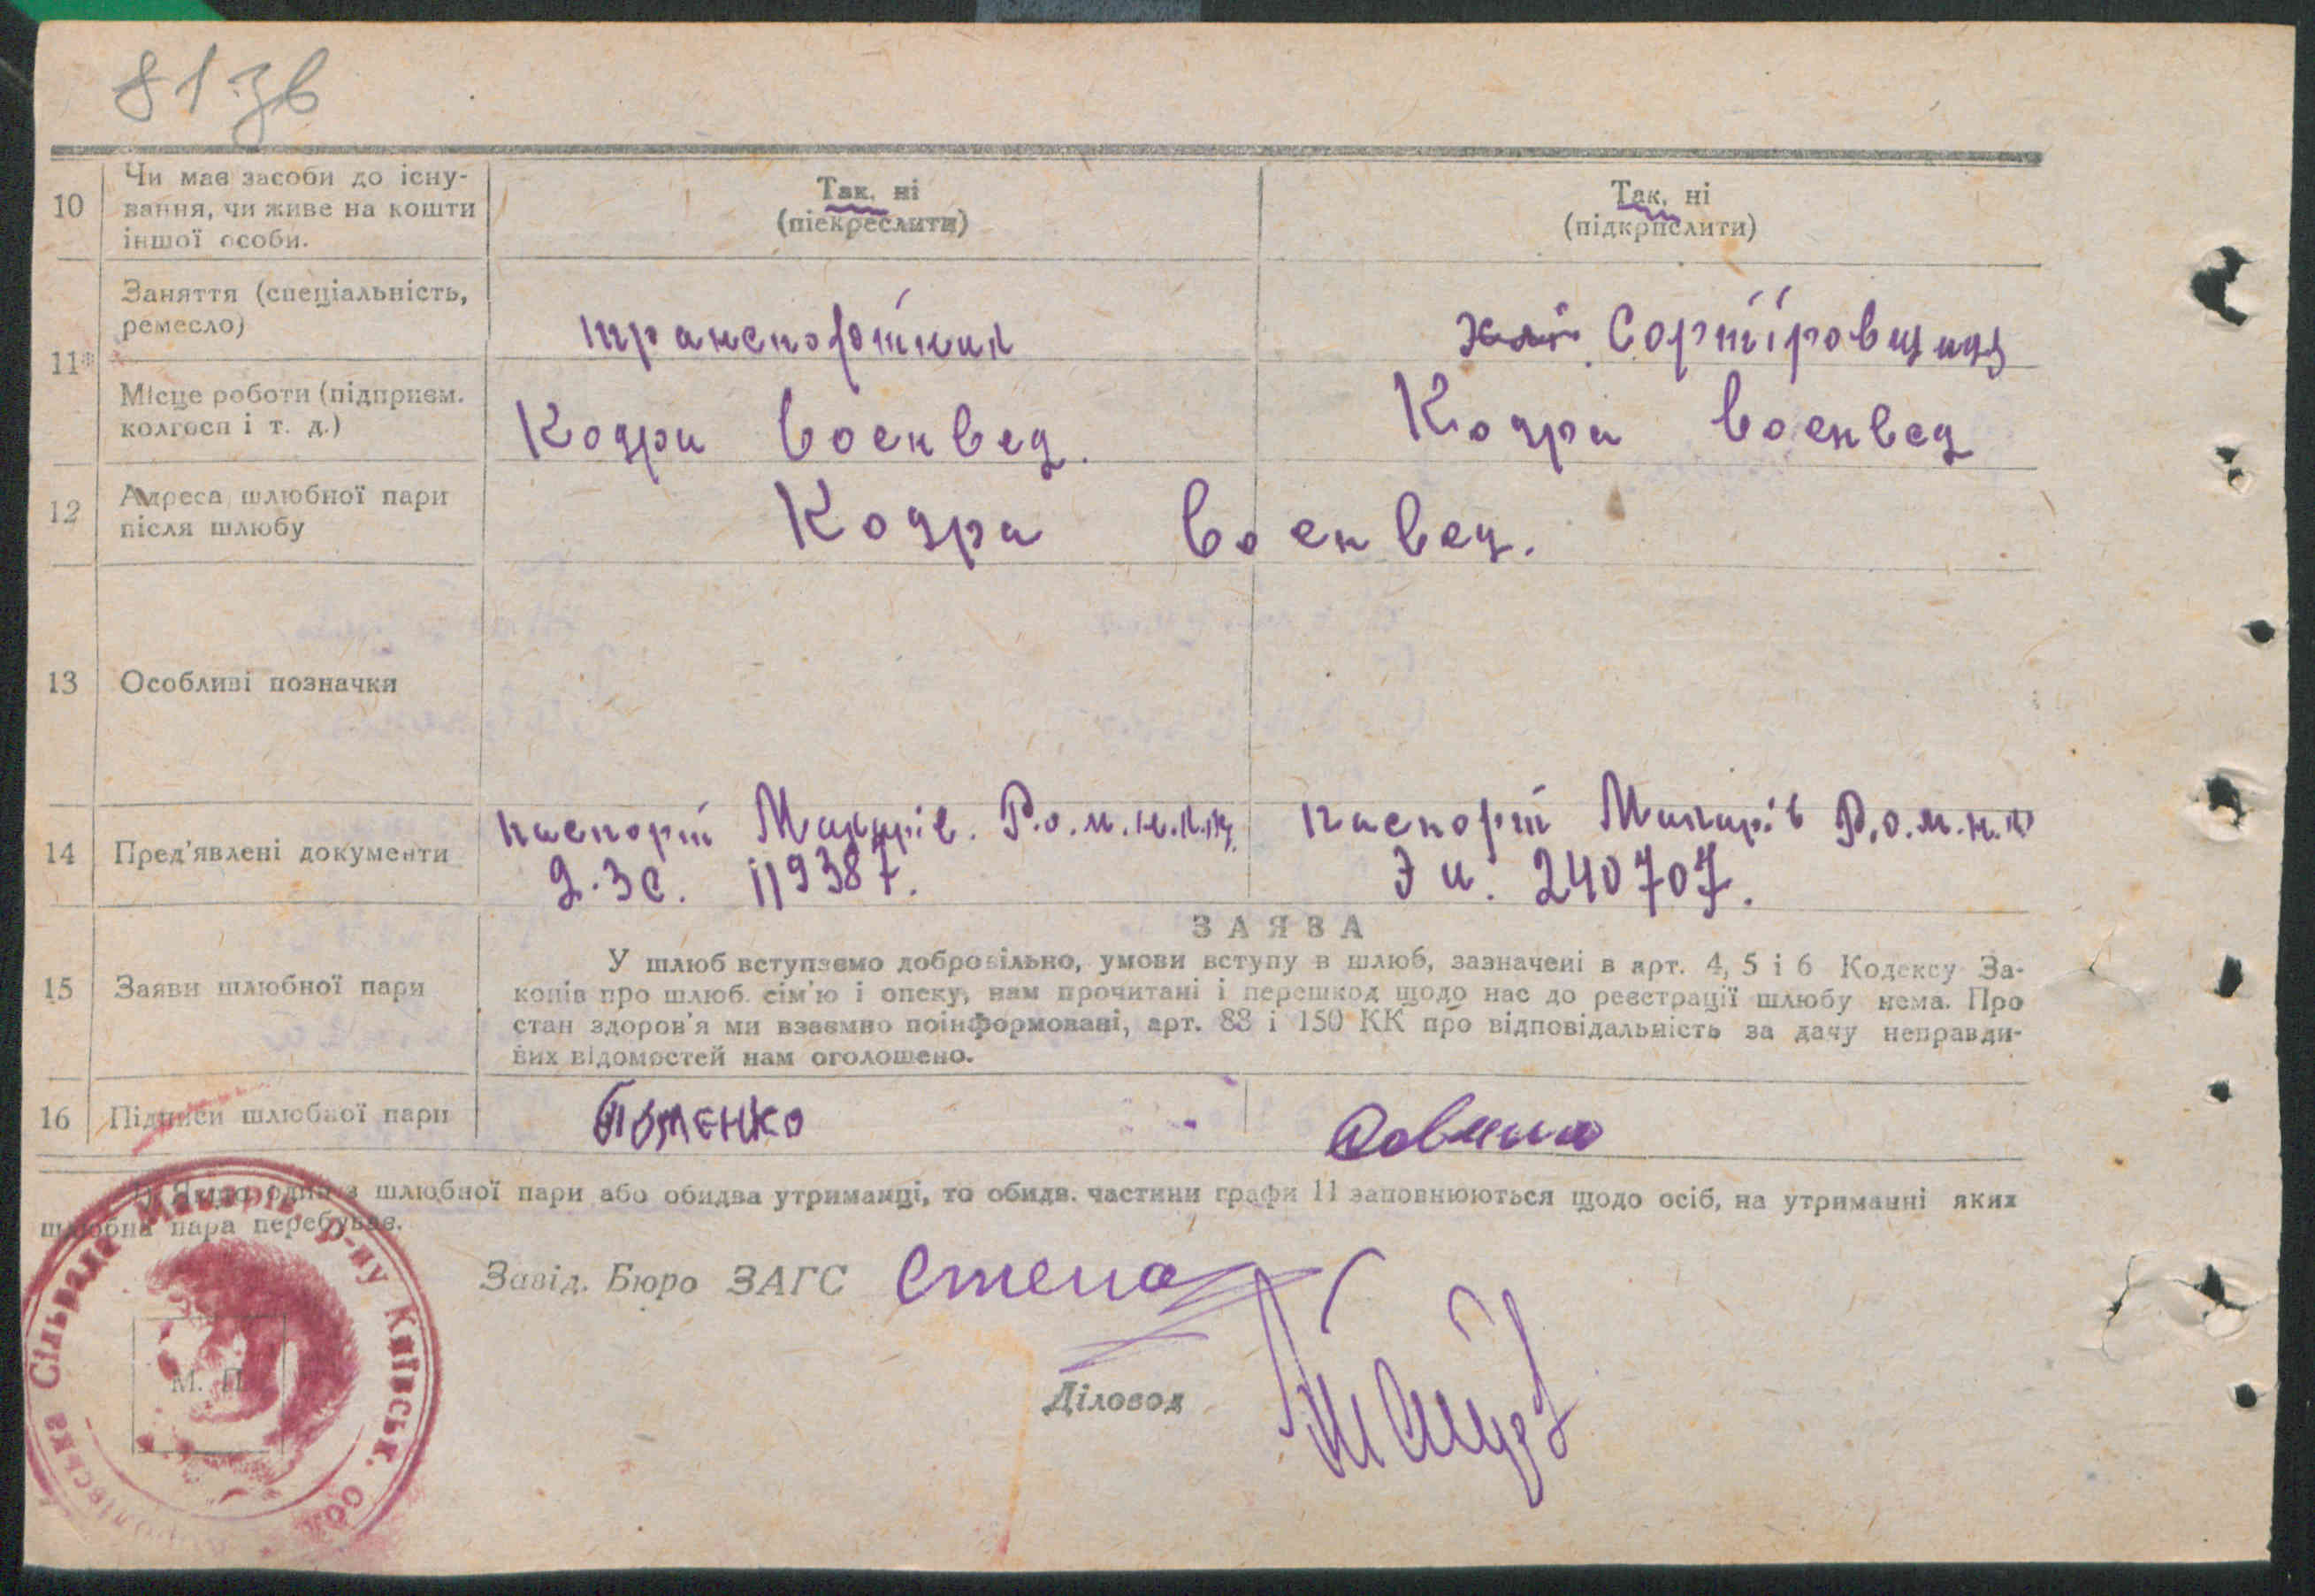 81 зв
10 Чи має засоби до існу-
вання, чи живе на кошти
іншої особи.
Так, ні
(піекреслити)
Так, ні
(підкрпслити)
11
Заняття (спеціальність,
ремесло)
транспортник
Сортіровщица
Місце роботи (підприєм.
колгосп і т. д.)
Кодри Воєнвед.
Кодра Воєнвед
12 Адреса шлюбної пари
після шлюбу
Кодра Воєнвед.
13 Особливі позначки
14 Пред'явлені документи
паспорт Макарів. Р.о.м.н.к.
119387.
паспорт Макарів Р.о.м.н.к
240707.
ЗАЯВА
15 Заяви шлюбної пари
У шлюб вступаємо добровільно, умови вступу в шлюб, зазначені в арт. 4, 5 і 6 Кодексу За-
конів про шлюб. сім'ю і опеку, нам прочитані і перешкод щодо нас до реєстрації шлюбу нема. Про
стан здоров'я ми взаємно поінформовані, арт. 88 і 150 КК про відповідальність за дачу неправди-
вих відомостей нам оголошено.
16 Підписи шлюбної пари
Якщо один з шлюбної пари або обидва утриманці, то обидв. частини графи 11 заповнюються щодо осіб, на утриманні яких
шлюбна пара перебуває.
Завід. Бюро ЗАГС
Діловод
М. П.
Сільрада Макарів. р-ну Київськ. обл.